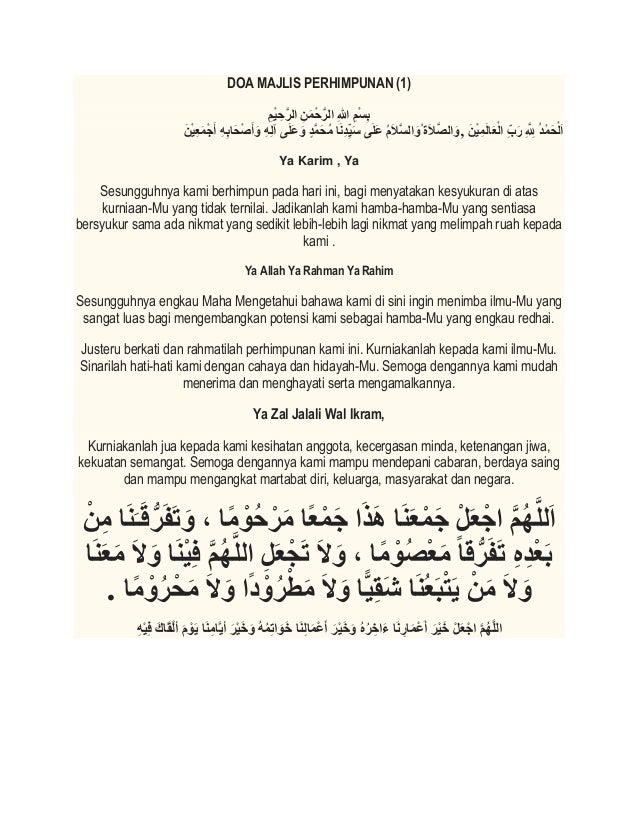 DOA MAJLIS PERHIMPUNAN (1)
بِسْمِ اللهِ الرَّحْمَنِ الرَّحِيْمِ
اَلْحَمْدُ لِلَّهِ رَبِّ الْعَالَمِيْنَ , وَالصَّلاَةُ وَالسَّلاَمُ عَلَى سَيِّدِنَا مُحَمَّدٍ وَعَلَى آلِهِ وَأَصْحَابِهِ أَجْمَعِيْنَ
Ya Karim , Ya
Sesungguhnya kami berhimpun pada hari ini, bagi menyatakan kesyukuran di atas
kurniaan-Mu yang tidak ternilai. Jadikanlah kami hamba-hamba-Mu yang sentiasa
bersyukur sama ada nikmat yang sedikit lebih-lebih lagi nikmat yang melimpah ruah kepada
kami .
Ya Allah Ya Rahman Ya Rahim
Sesungguhnya engkau Maha Mengetahui bahawa kami di sini ingin menimba ilmu-Mu yang
sangat luas bagi mengembangkan potensi kami sebagai hamba-Mu yang engkau redhai.
Justeru berkati dan rahmatilah perhimpunan kami ini. Kurniakanlah kepada kami ilmu-Mu.
Sinarilah hati-hati kami dengan cahaya dan hidayah-Mu. Semoga dengannya kami mudah
menerima dan menghayati serta mengamalkannya.
Ya Zal Jalali Wal Ikram,
Kurniakanlah jua kepada kami kesihatan anggota, kecergasan minda, ketenangan jiwa,
kekuatan semangat. Semoga dengannya kami mampu mendepani cabaran, berdaya saing
dan mampu mengangkat martabat diri, keluarga, masyarakat dan negara.
اَللَّهُمَّ اجْعَلْ جَمْعَنَا هَذَا جَمْعًا مَرْحُوْمًا ، وَتَفَرُّقَنَا مِنْ
بَعْدِهِ تَفَرُّقاً مَعْصُوْمًا ، وَلاَ تَجْعَلِ اللَّهُمَّ فِيْنَا وَلاَ مَعَنَا
وَلاَ مَنْ يَتْبَعُنَا شَقِيًّا وَلاَ مَطْرُوْدًا وَلاَ مَحْرُوْمًا .
اللَّهُمَّ اجْعَلْ خَيْرَ أَعْمَارِنَا ءَاخِرُهُ وَخَيْرَ أَعْمَالِنَا خَوَاتِمُهُ وَخَيْرَ أَيَّامِنَا يَوْمَ أَلْقَاكَ فِيْهِ